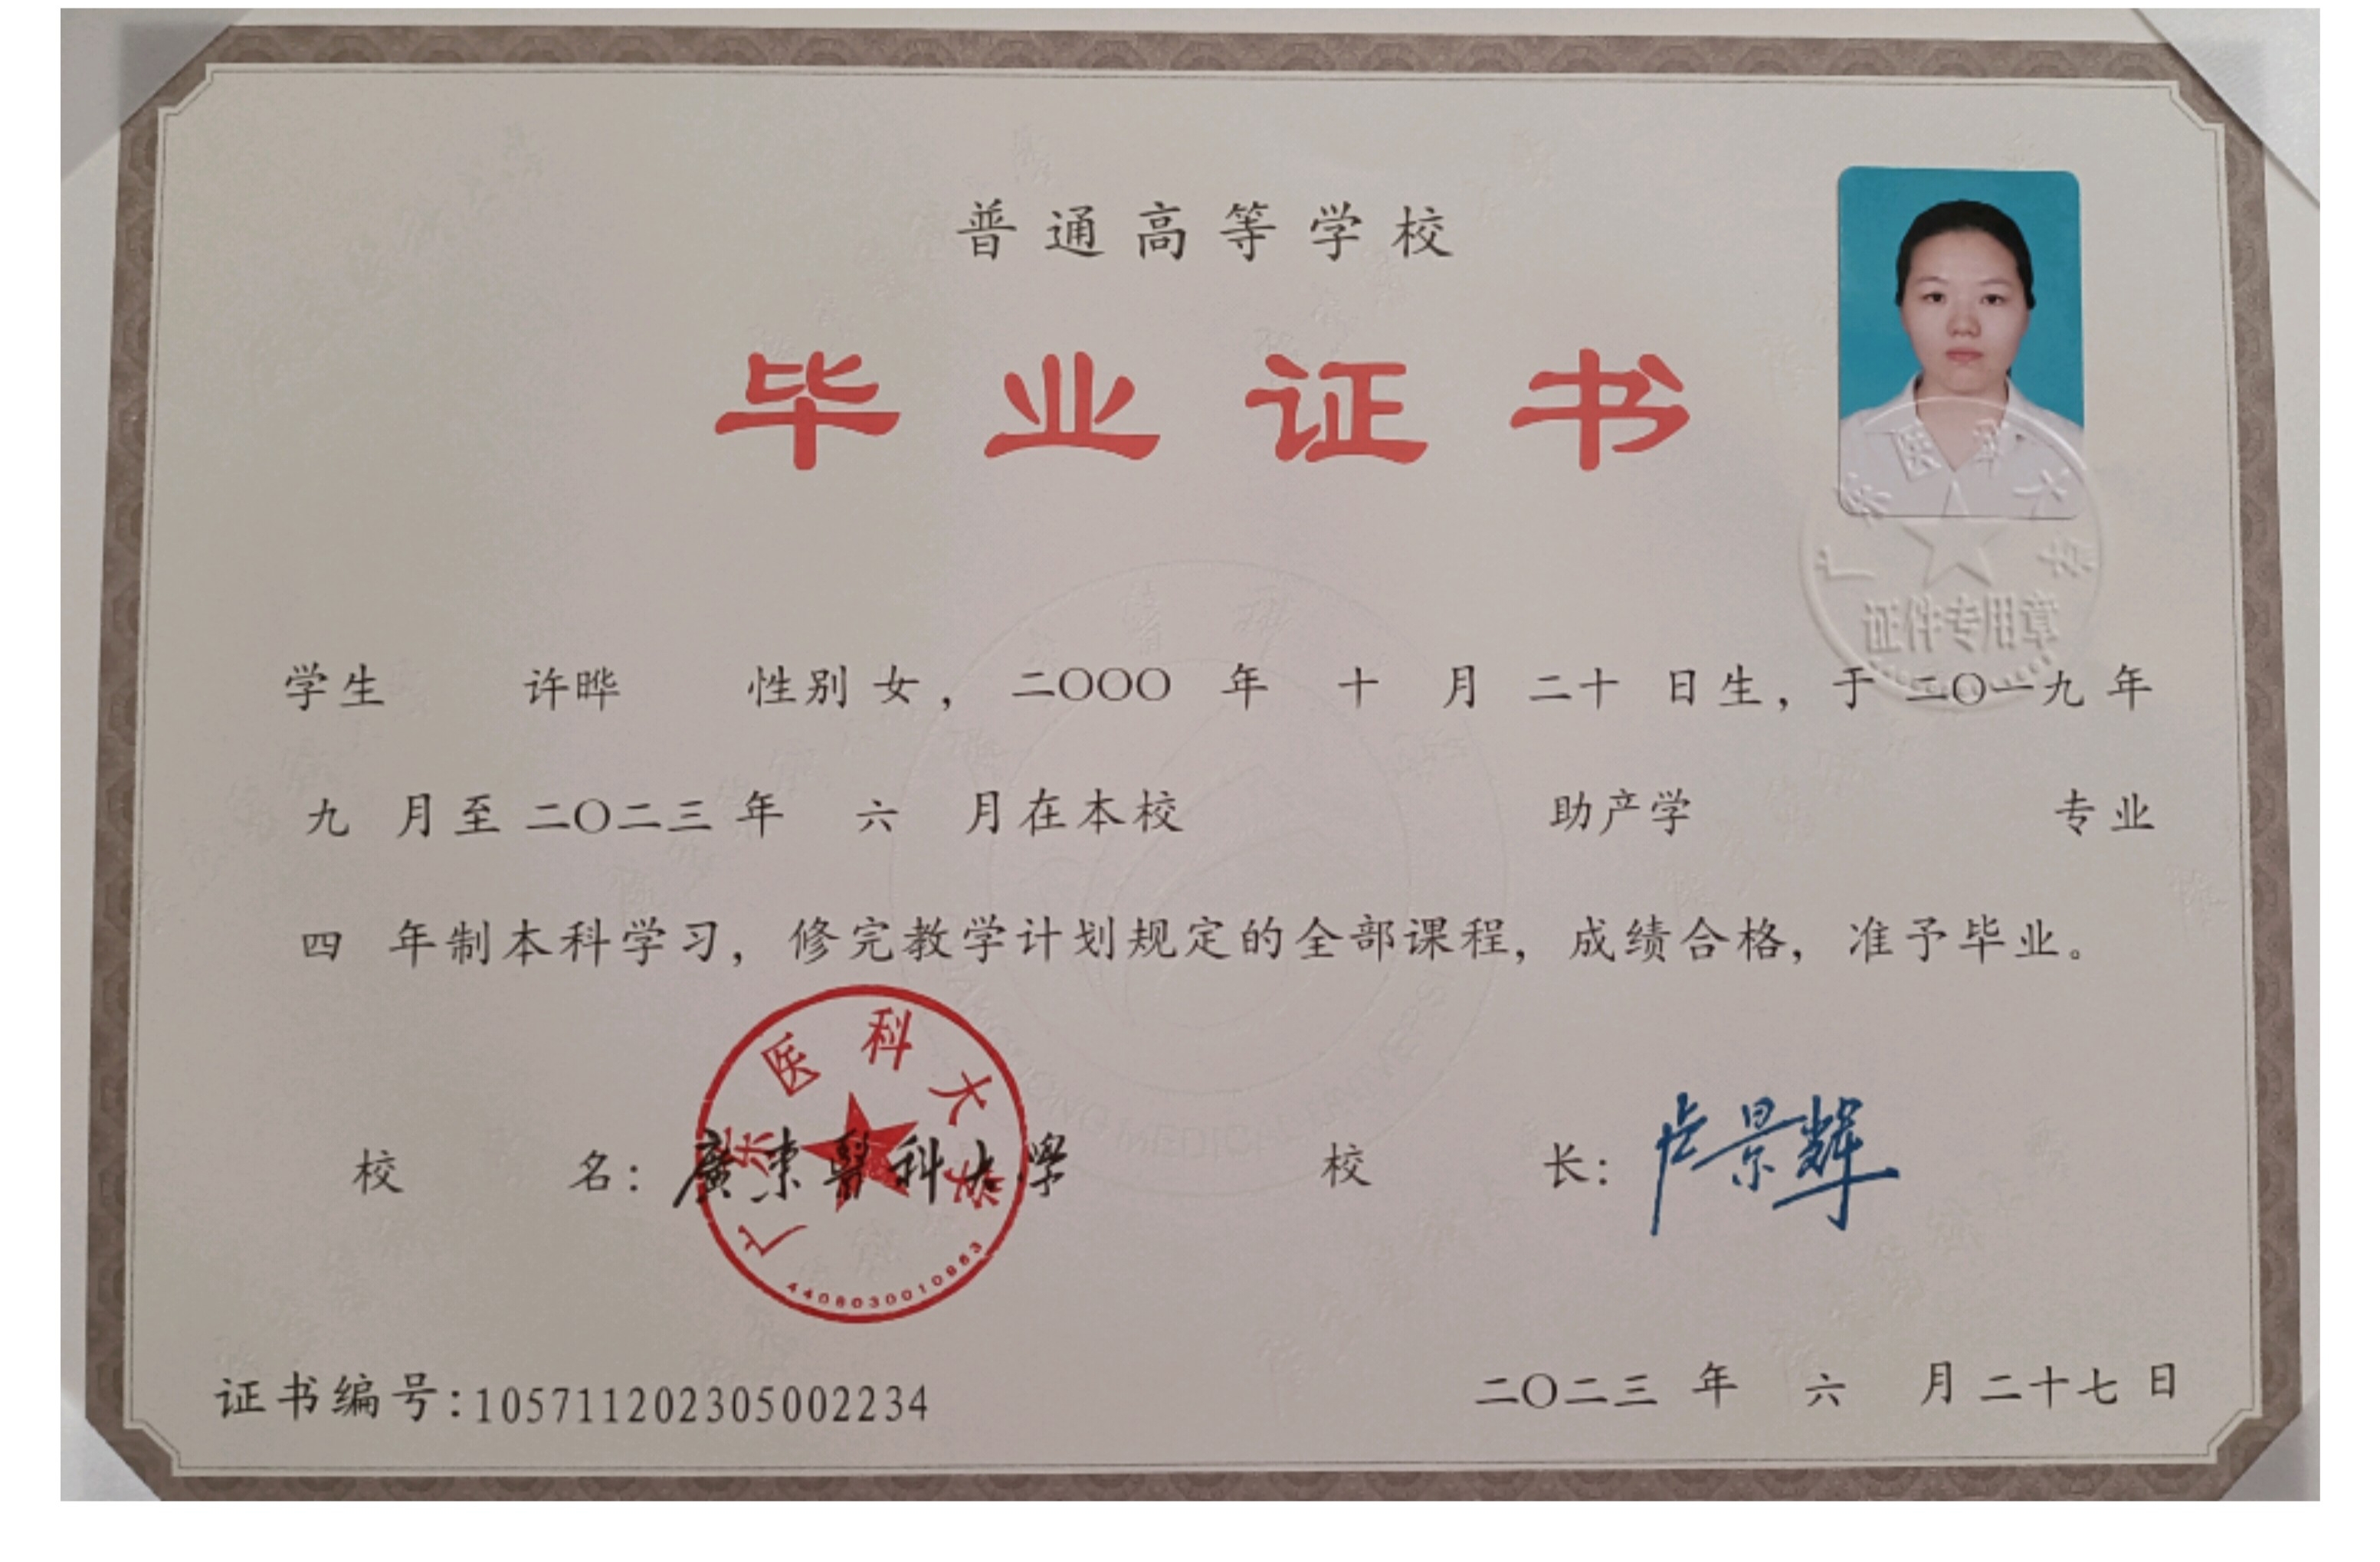 普通高等学校
毕业证书
学生 许晔 性别 女， 二〇〇〇 年 十 月 二十 日生，于 二〇一九 年
九 月至 二〇二三 年 六 月在本校 助产学 专业
四 年制本科学习，修完教学计划规定的全部课程，成绩合格，准予毕业。
广东医科大学
校 名：廣东醫科大学 校 长：卢景辉
4408030010963
证书编号:105711202305002234 二〇二三 年 六 月 二十七 日
广东医科大学
证件专用章